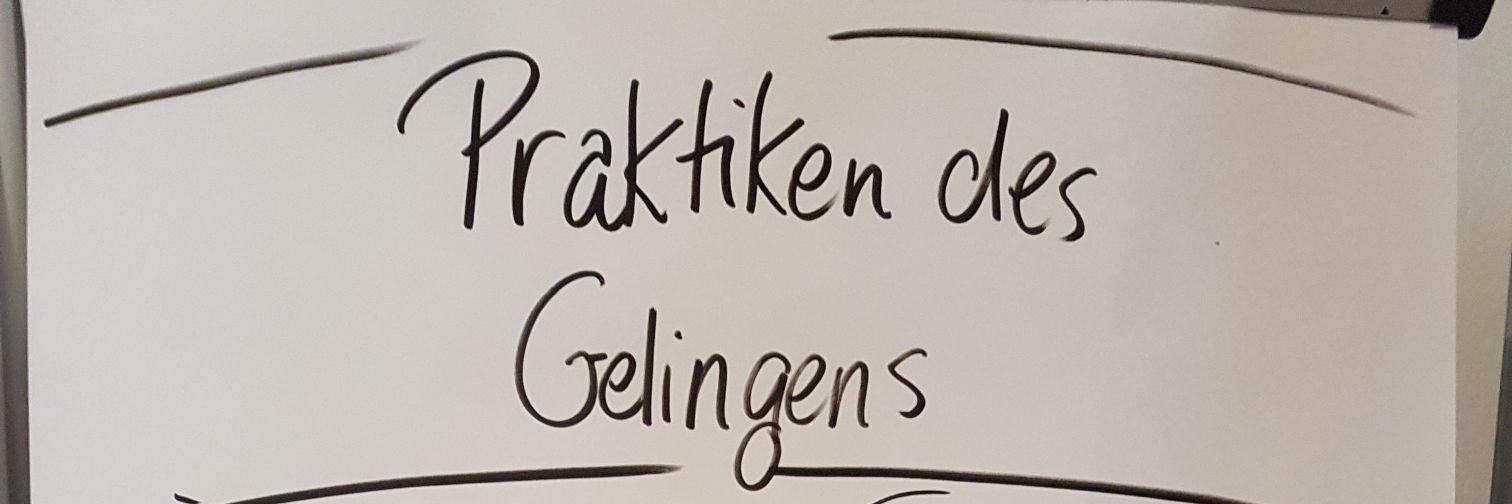 Praktiken des
Gelingens